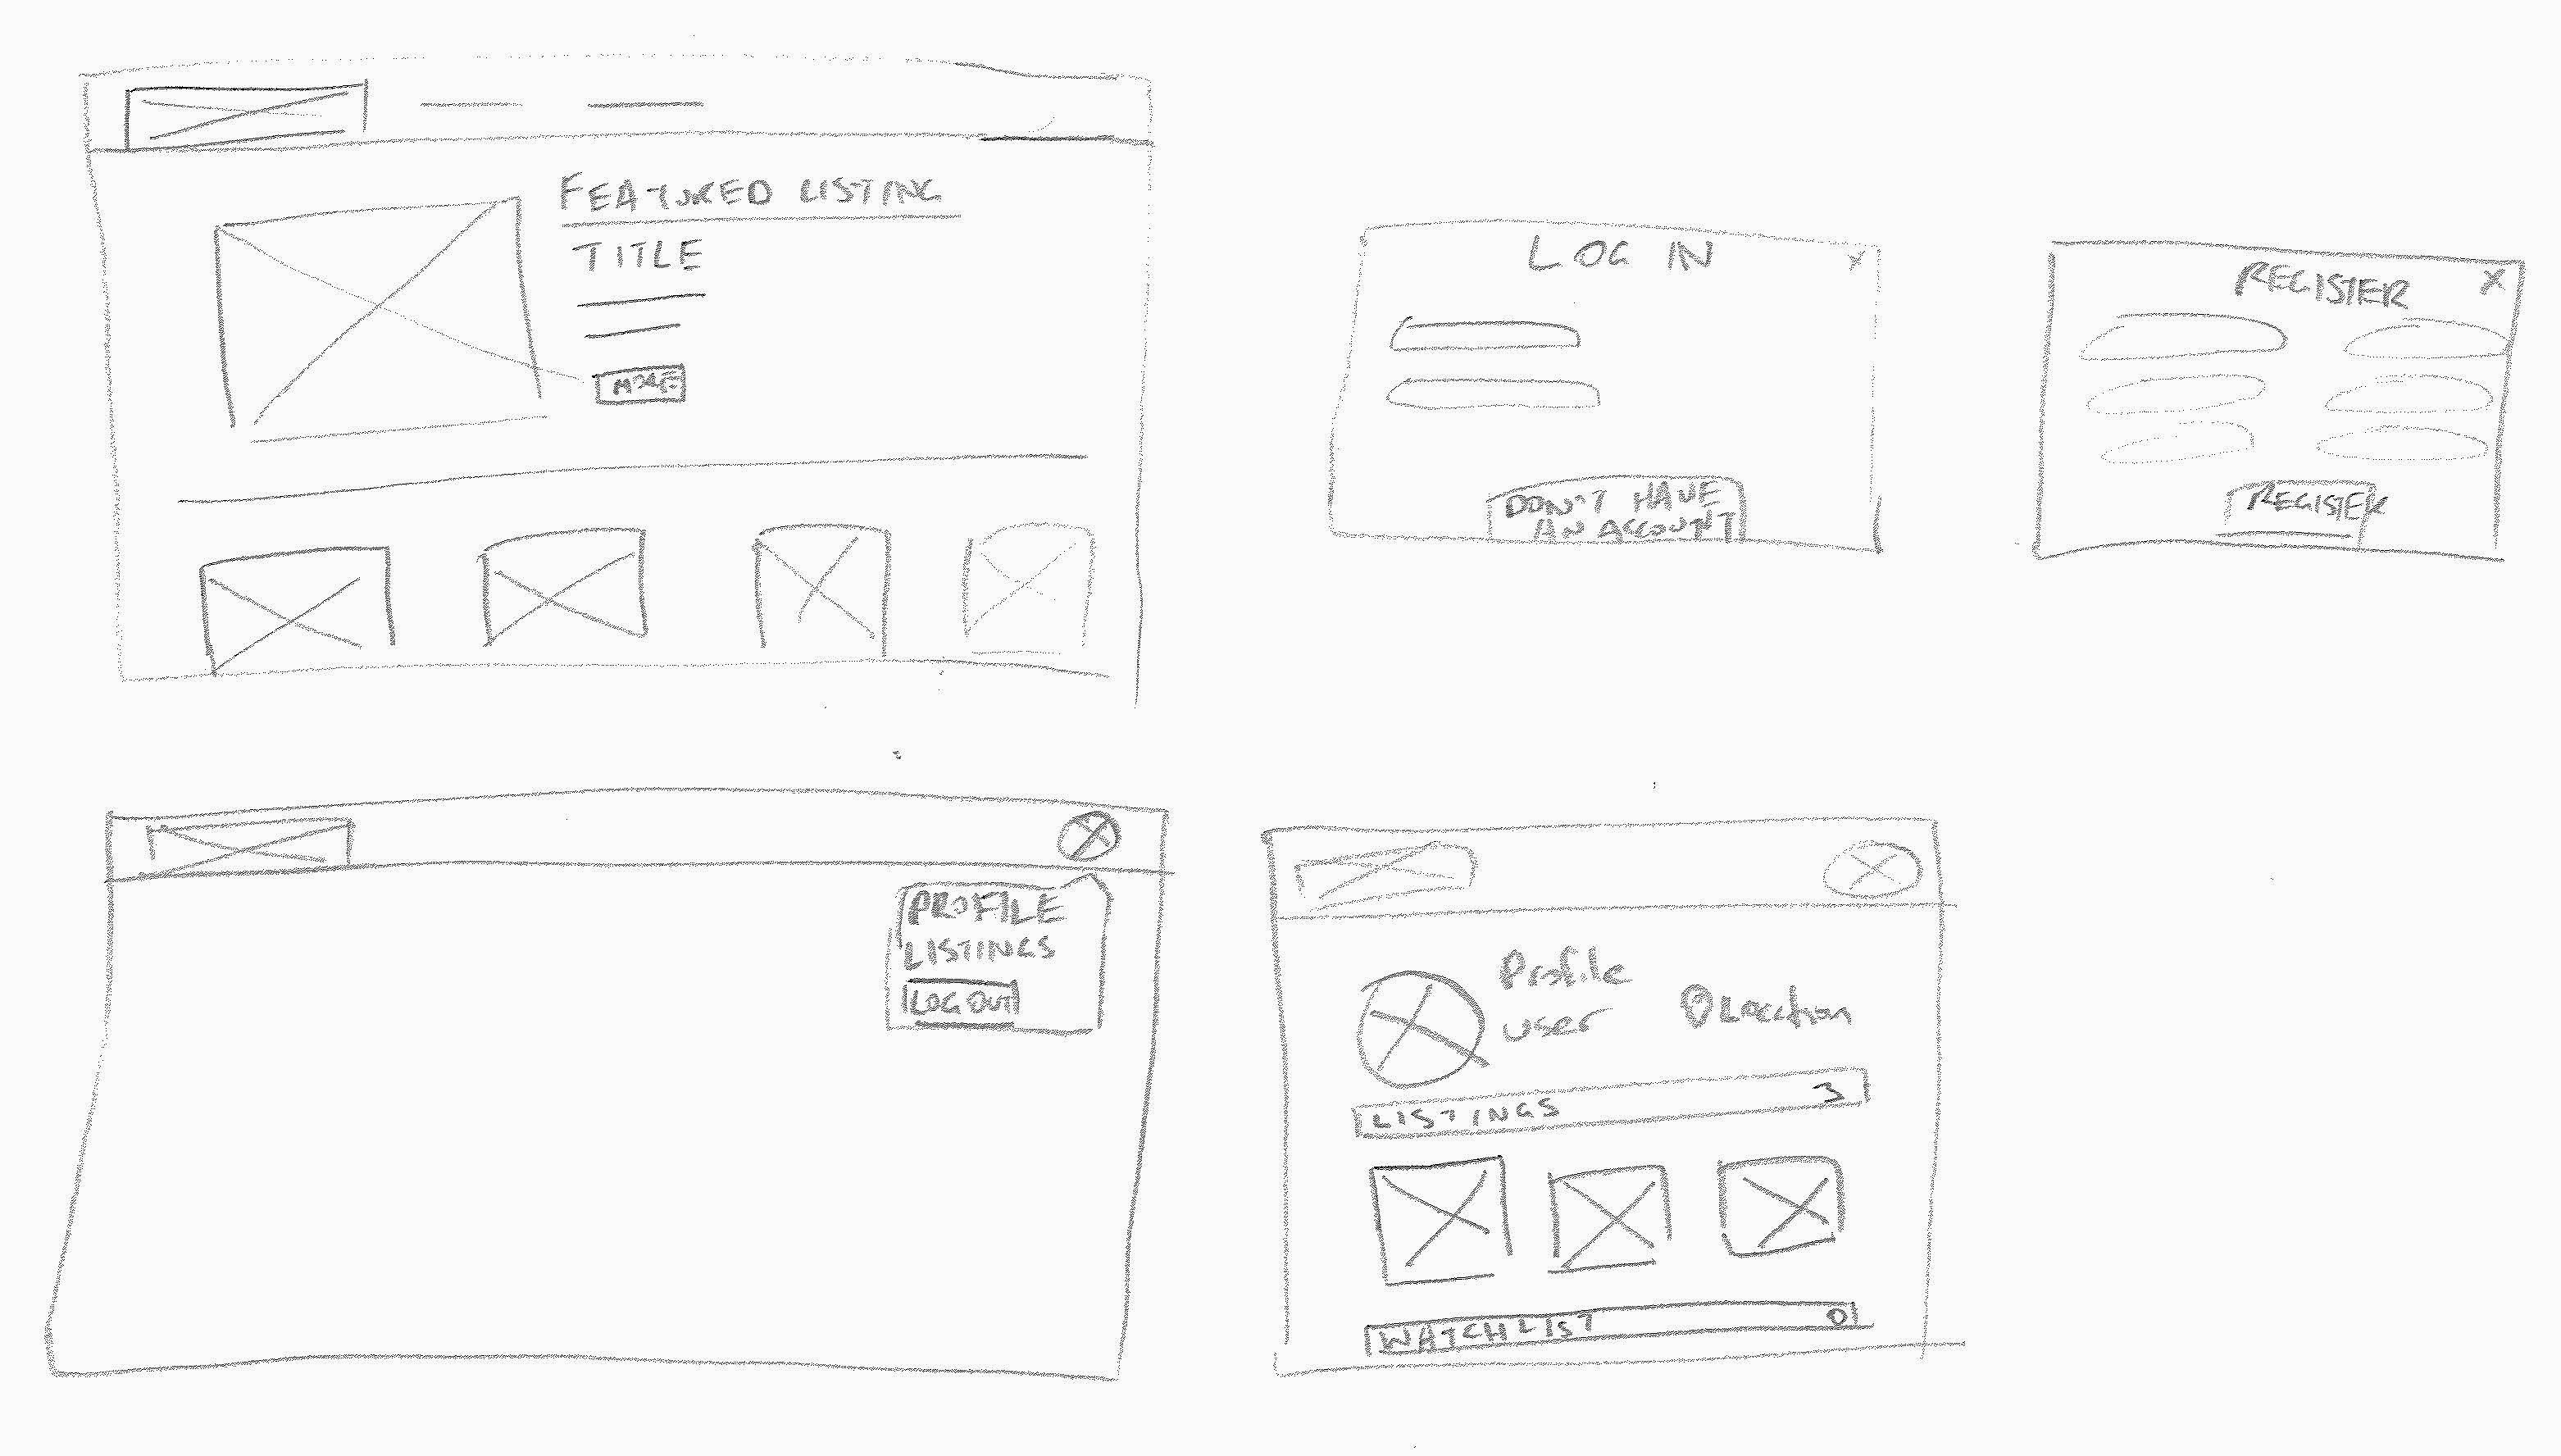 FEATURED LISTING
TITLE
MORE
LOG IN
X
DON'T HAVE
AN ACCOUNT
REGISTER
X
REGISTER
PROFILE
LISTINGS
LOG OUT
Profile
user
Location
LISTINGS 3
WATCHLIST 0